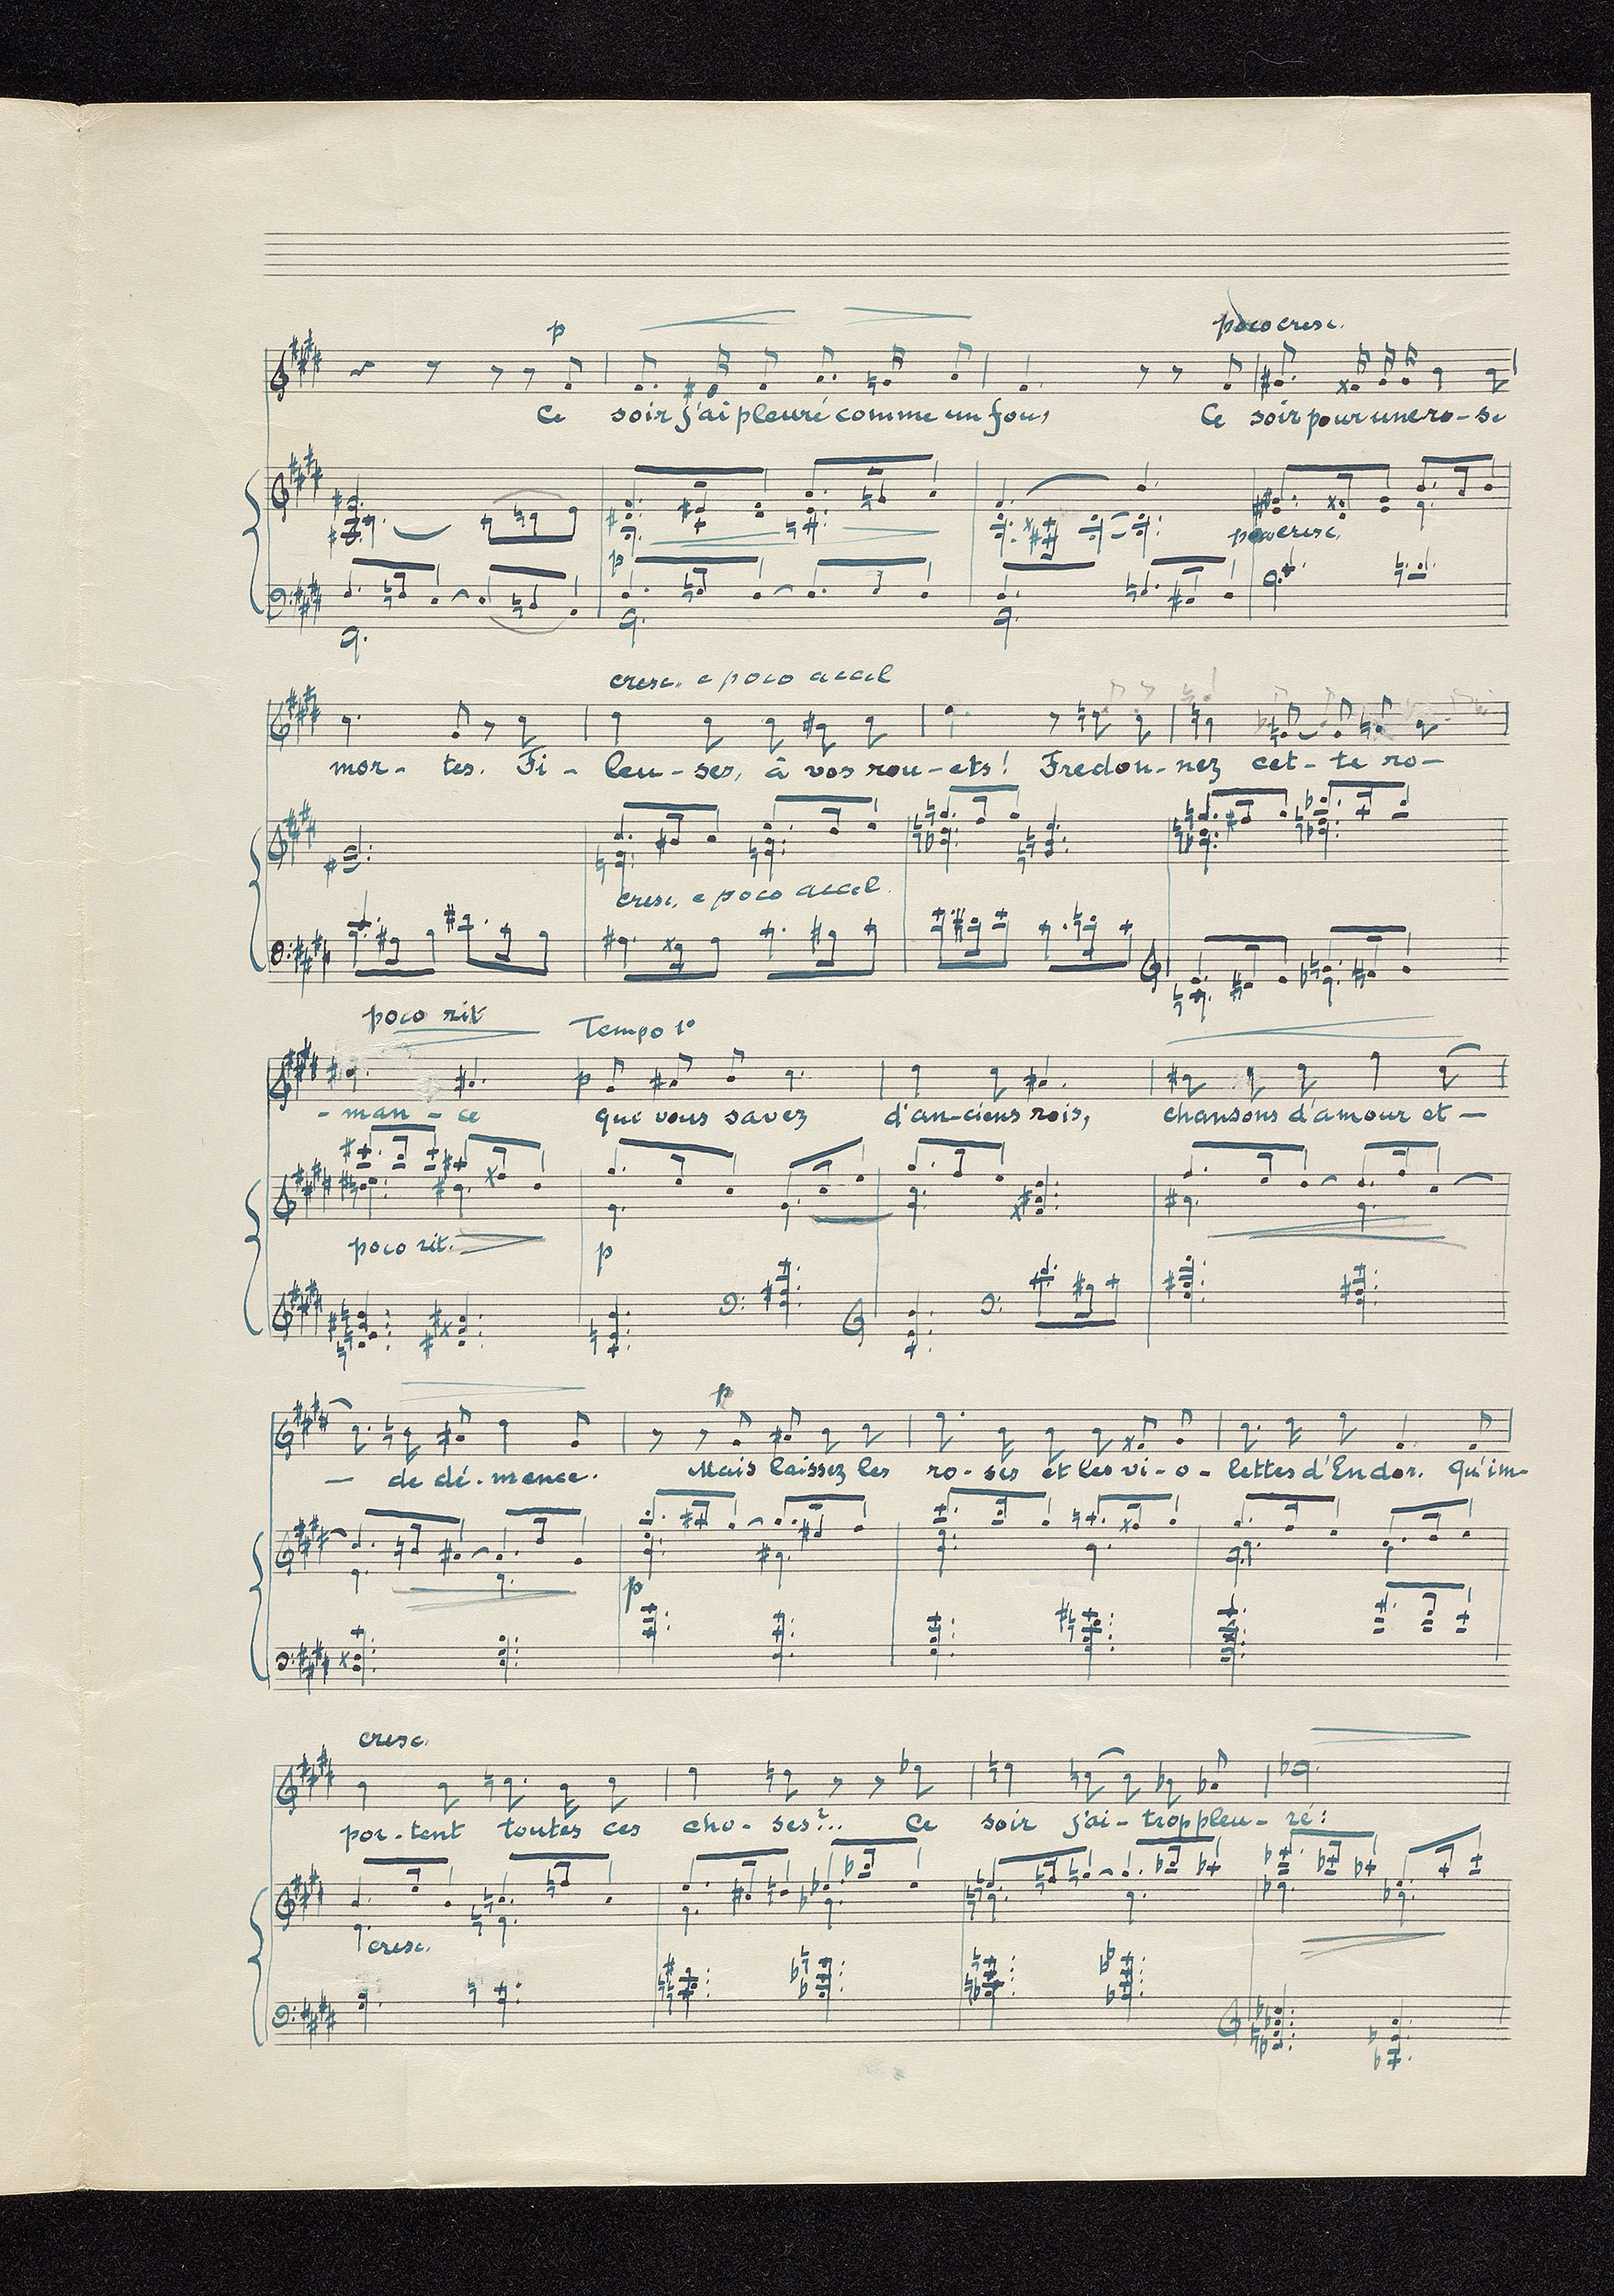 p
poco cresc.
Ce soir j'ai pleuré comme un fou, Ce soir pour une ro-se
poco cresc.
p
cresc. e poco accel
mor- tes. Fi- leu- ses, à vos rou- ets! Fredon- nez cet- te ro-
cresc. e poco accel.
poco rit Tempo 1º
p
- man - ce que vous savez d'an-ciens rois, chansons d'amour et -
poco rit. p
p
- de dé- mence. Mais laissez les ro- ses et les vi- o- lettes d'Endor. Qu'im-
p
cresc.
por- tent toutes ces cho- ses?... Ce soir j'ai- trop pleu- ré:
cresc.